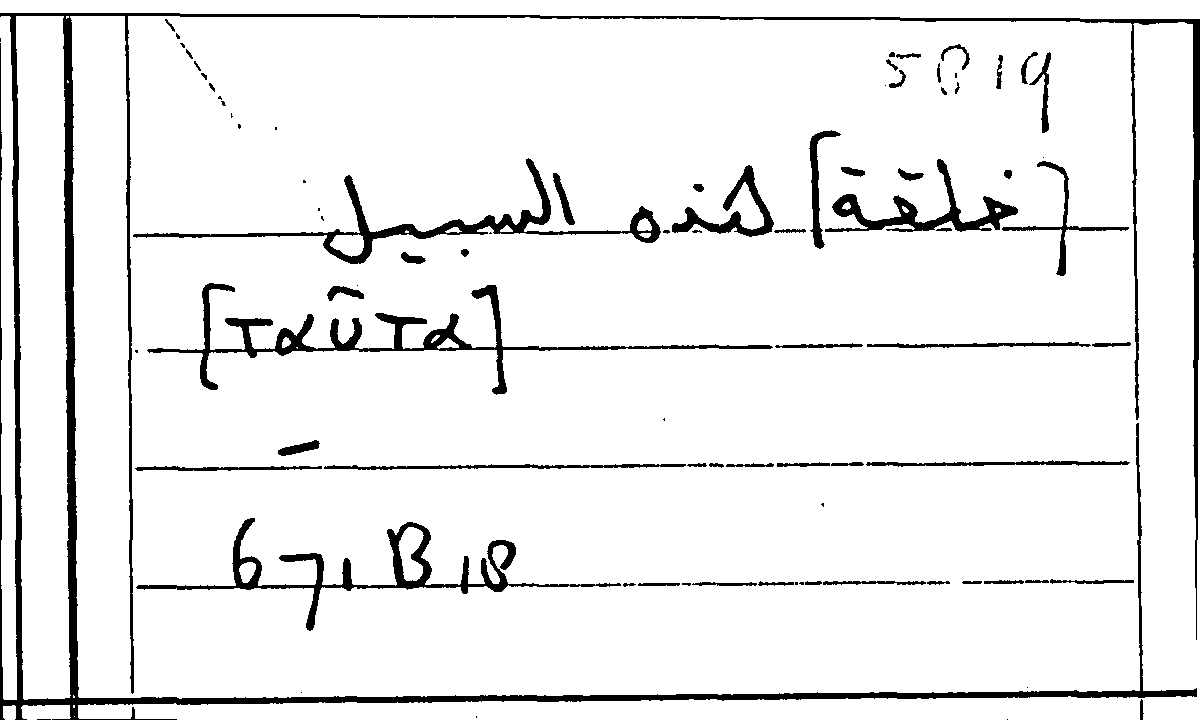 5819
[خلقة] لهذه السبيل
[ταῦτα]
–
671B18